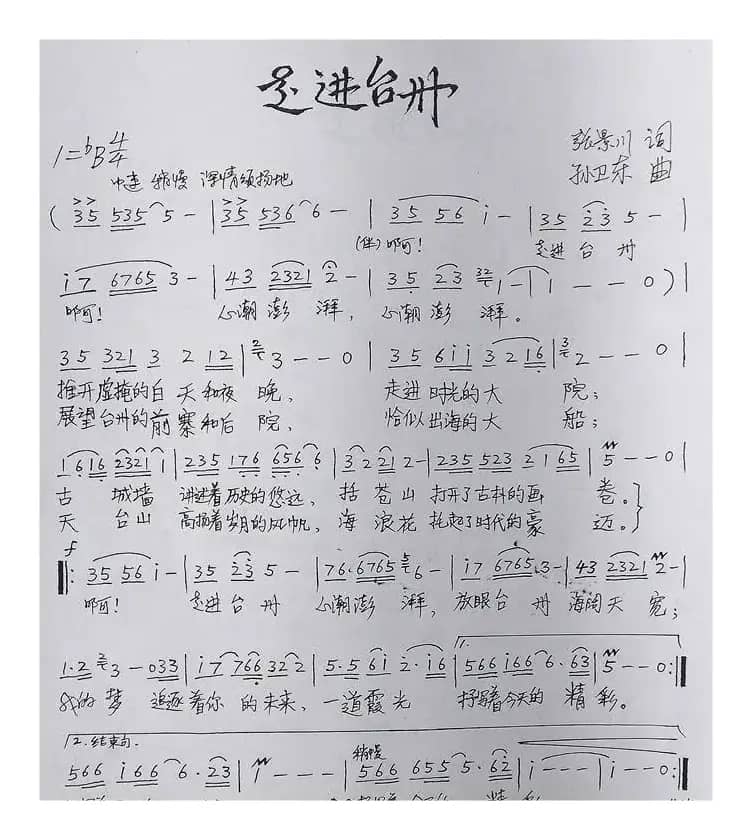 走进台州
1=♭B 4/4
张景川 词
中速 稍慢 深情颂扬地
孙卫东 曲
(35 535 5 - | 35 536 6 - | 35 56 i - | 35 23 5 - |
(伴)啊! 走进 台 州
i7 6765 3 - | 43 2321 2 - | 35 23 1 - | 1 - - 0) |
啊! 心潮 澎 湃, 心潮 澎 湃。
35 321 3 2 12 | 3 - - 0 | 35 6ii 3 2 16 | 2 - - 0 |
推开虚掩的白 天和夜 晚, 走进 时光的大 院;
展望台州的前 寨和后 院, 恰似 出海的大 船;
1616 2321 i | 235 176 656 6 | 3 2 21 2 - | 235 523 2 165 | 5 - - 0 |
古 城墙 讲述着 历史的 悠远, 括 苍山 打开了古朴的画 卷。
天 台山 高扬着 岁月的 风帆, 海 浪花 托起了时代的豪 迈。
f
‖: 35 56 i - | 35 23 5 - | 76·6765 6 - | i7 6765 3 - | 43 2321 2 - |
啊! 走进 台 州 心潮澎 湃, 放眼台 州 海阔天 宽;
1.
1·2 3 - 033 | i7 766 32 2 | 5·5 6i 2·i6 | 566 i66 6·63 | 5 - - 0 :‖
我的 梦 追逐着你 的未来, 一道霞光 抒写着今天的 精 彩。
2. 结束句.
稍慢
566 i66 6·23 | i - - - | 566 655 5·62 | i - - - | i - - 0 :‖